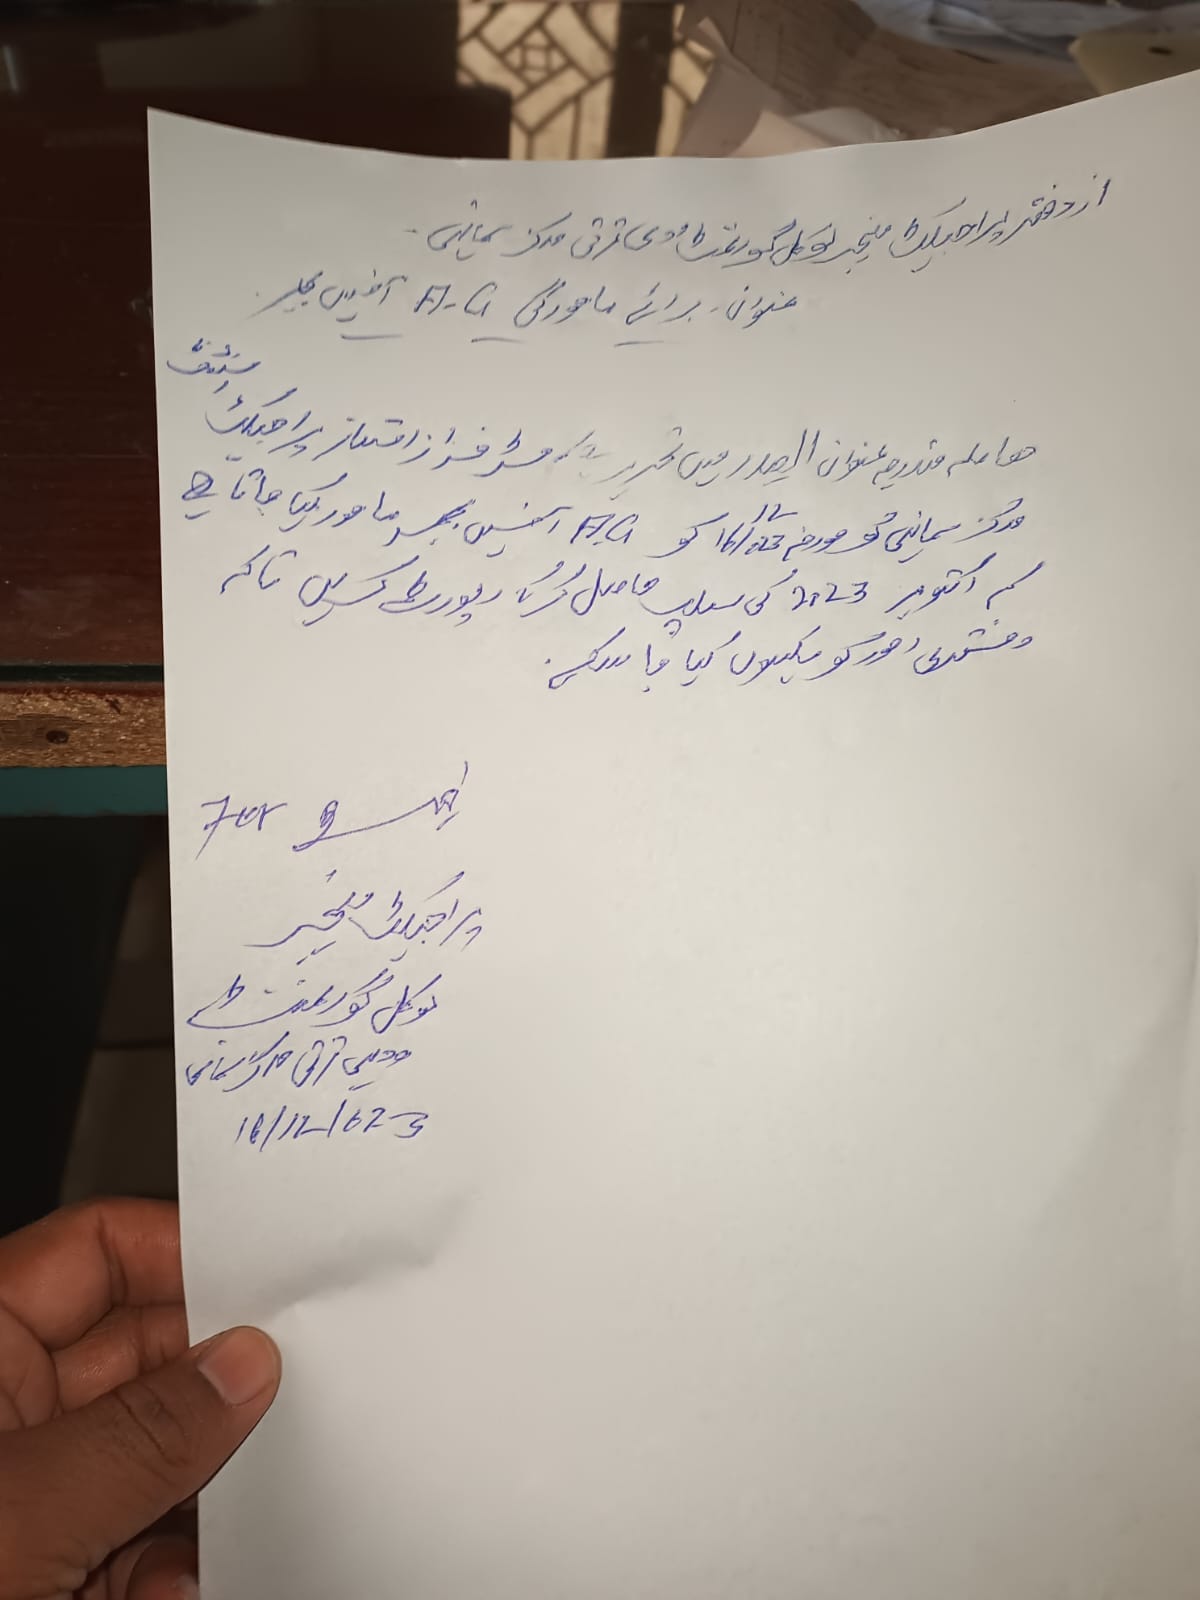 از دفتر پراجیکٹ منیجر لوکل گورنمنٹ دیہی ترقی مرکز سماہنی۔
عنوان۔ برائے ماموری A-G آفس بھمبر
اسسٹنٹ
معاملہ مندرجہ عنوان الصدر میں تحریر ہے کہ مسٹر فراز امتیاز پراجیکٹ
مرکز سماہنی کو مورخہ 16/12/023 کو A.G آفس بھمبر مامور کیا جاتا ہے
کہ اکتوبر 2023 کی سلپ حاصل کر کے رپورٹ کریں تاکہ
دفتری امور کو یکسوں کیا جا سکے۔
For
پراجیکٹ منیجر
لوکل گورنمنٹ
دیہی ترقی مرکز سماہنی
16/12/023